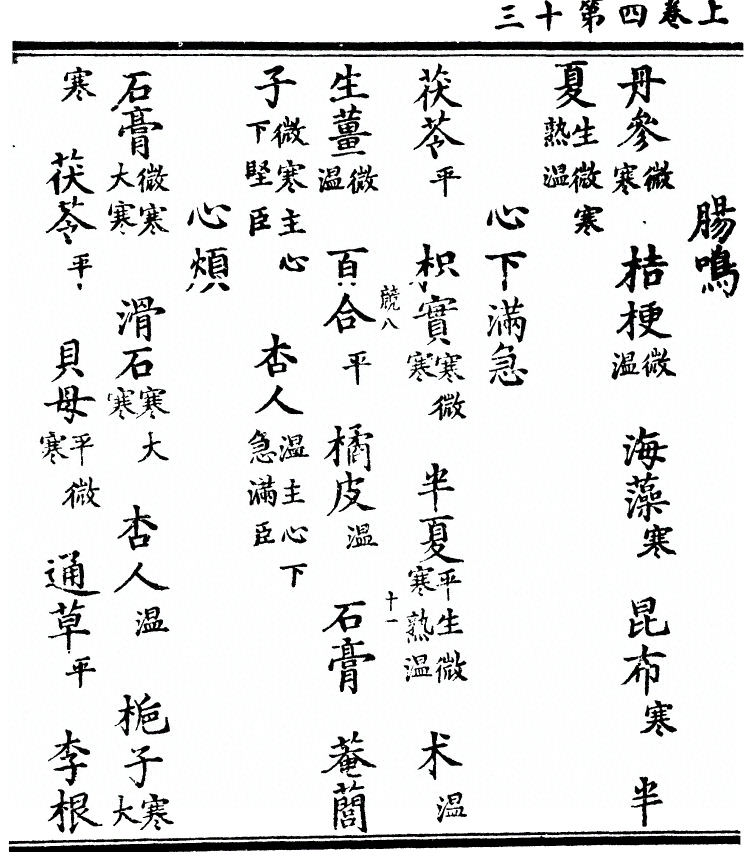 上卷四第十三
腸鳴
丹參微寒 桔梗微溫 海藻寒 昆布寒 半
夏生微寒熟溫
心下滿急
茯苓平 枳實寒微寒 半夏平生微寒熟溫 术溫
八 十一
生薑微溫 百合平 橘皮溫 石膏 菴䕡
子微寒主心下堅臣 杏人溫主心下急滿臣
心煩
石膏微寒大寒 滑石寒大寒 杏人溫 梔子寒大
寒 茯苓平 貝母平微寒 通草平 李根